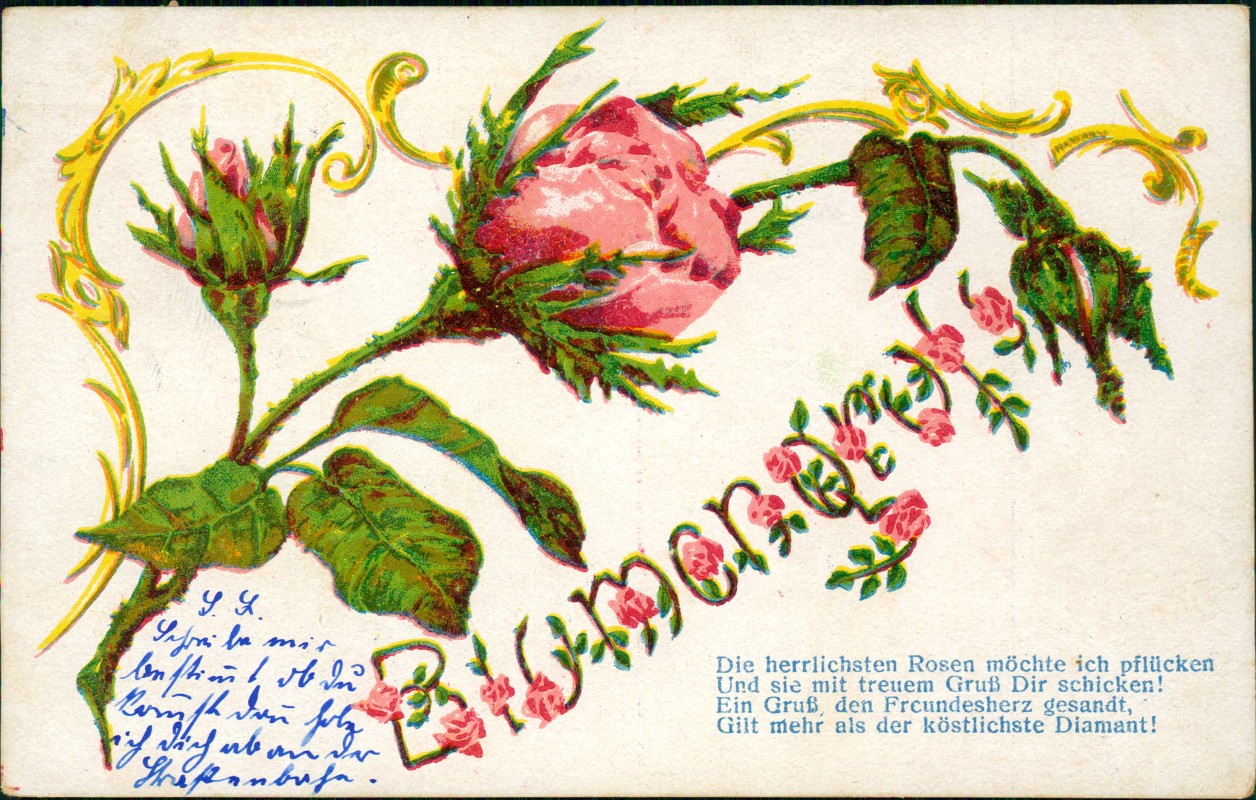 Blumengruß
Schreibe mir
bestim̄t ob du
kom̄st dan̄ hole
ich dich ab an der
Straßenbahn.
Die herrlichsten Rosen möchte ich pflücken
Und sie mit treuem Gruß Dir schicken!
Ein Gruß, den Freundesherz gesandt,
Gilt mehr als der köstlichste Diamant!